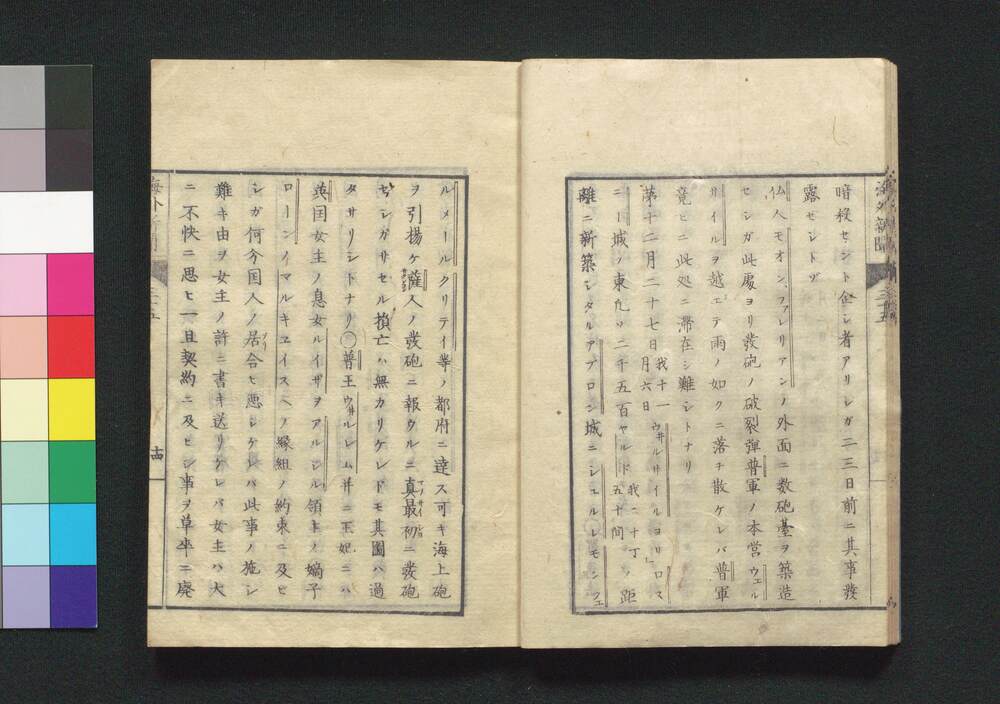 暗殺セント企シ者アリシガ二三日前ニ其事發
露セシトゾ
仏人モオン、ファレリアンノ外面ニ数砲臺ヲ築造
セシガ此處ヨリ發砲ノ破裂弾普軍ノ本営ウェル
サイルヲ越エテ雨ノ如クニ落チ散ケレバ普軍
竟ヒニ此処ニ滞在シ難シトナリ
第十二月二十七日 我十一月六日 ウヰルサイルヨリロス
ニー城ノ東九ソ二千五百ヤルド 我二十丁五十間 ノ距
離ニ新築シタルアブロン城ニシェルレモンフェ
ルメールクリテイ等ノ都府ニ達ス可キ海上砲
ヲ引揚ケ薩人ノ發砲ニ報ウルニ真最初ニ發砲
セシガサセル損亡ハ無カリケレドモ其圖ハ過
タサリシトナリ〇普王ウヰルレム并ニ王妃ニハ
英国女主ノ息女ルイザヲアルシル領主ノ嫡子
ローンイマルキヱイスヘノ縁組ノ約束ニ及ヒ
シガ何分国人ノ居合ヒ悪シケレバ此事ノ施シ
難キ由ヲ女主ノ許ニ書キ送リケレバ女主ハ大
ニ不快ニ思ヒ一旦契約ニ及ヒシ事ヲ草卒ニ廃